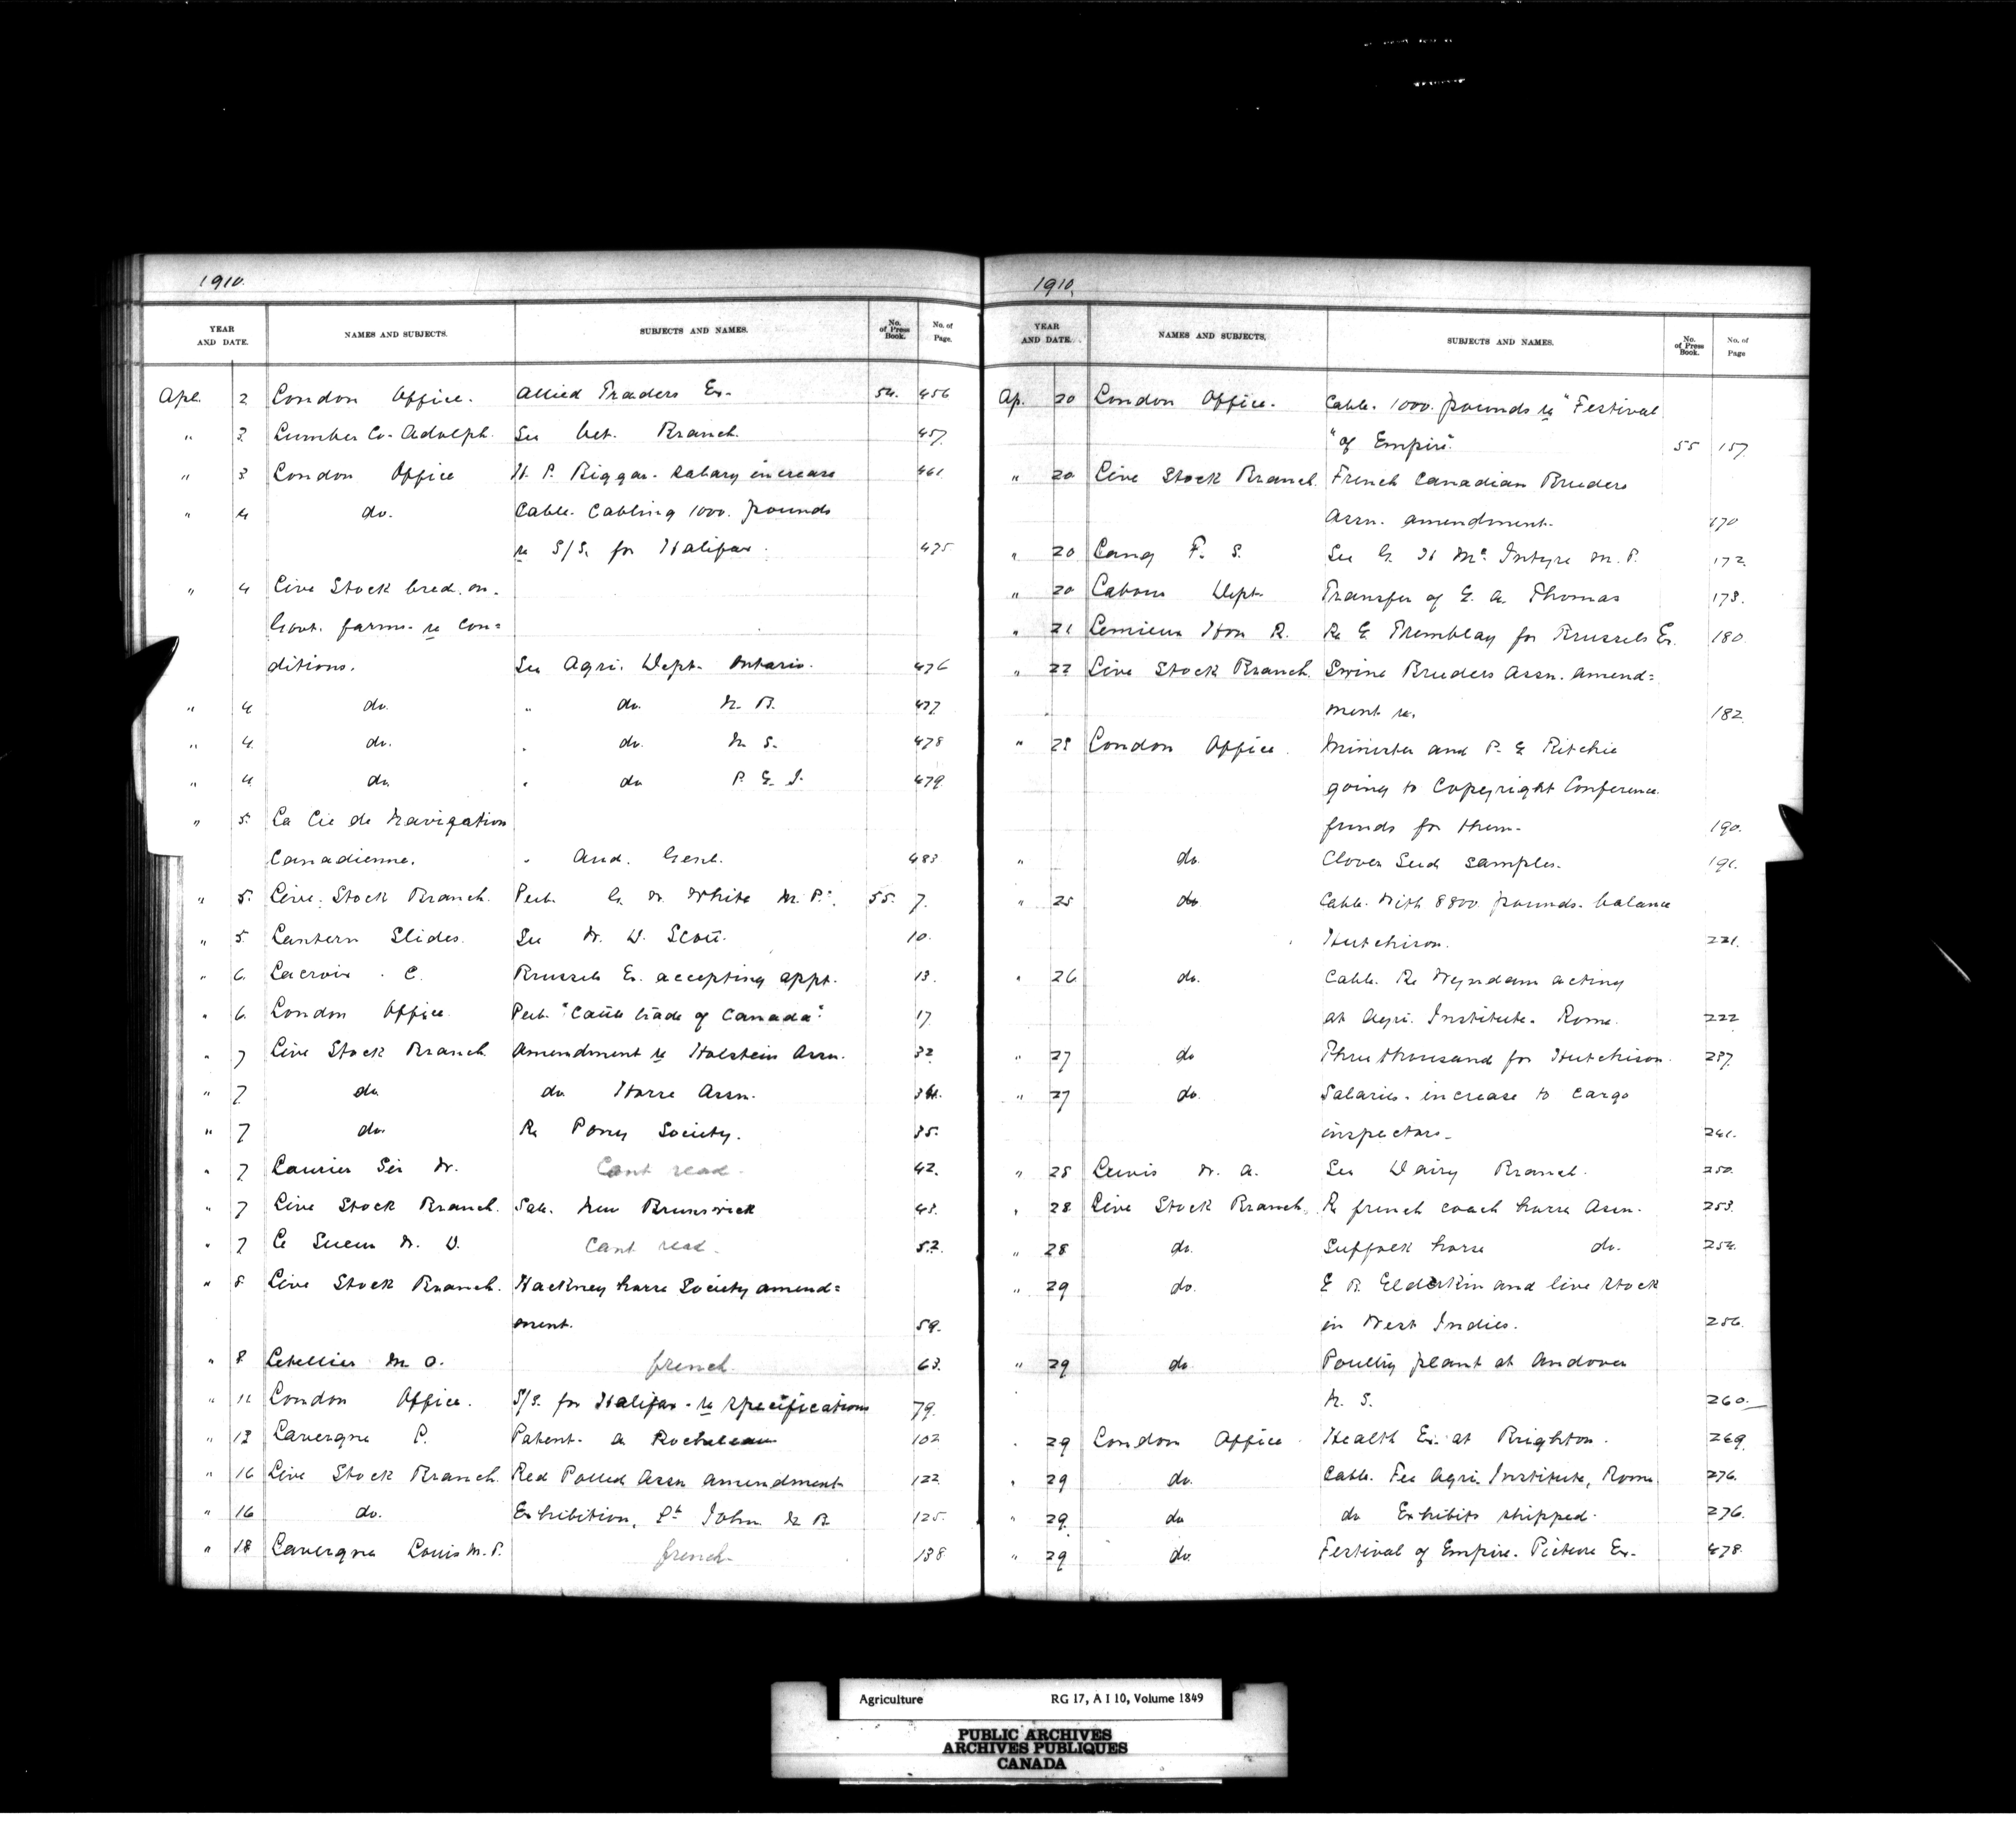 1910.
YEAR AND DATE. NAMES AND SUBJECTS. SUBJECTS AND NAMES. No. of Press Book. No. of Page.
Apl. 2 London Office. Allied Traders Ex. 54. 456
" 3. Lumber Co. Adolph. See Vet. Branch. 457
" 3 London Office H. P. Biggar. Salary increase 461
" 4 do. Cable. Cabling 1000. pounds
re S/S. for Halifax. 475
" 4 Live Stock bred. on.
Govt. farms. re Con=
ditions. See Agri. Dept. Ontario. 476
" 4 do. " do. N. B. 477
" 4. do. " do. N. S. 478
" 4 do. " do P. E. I. 479
" 5. La Cie de Navigation
Canadienne. " Aud. Genl. 483
" 5. Live Stock Branch. Pub. G. V. White M. P. 55. 7.
" 5. Lantern Slides. See W. D. Scott. 10.
" 6. Lacroix. C. Brussels Ex. accepting appt. 13.
" 6. London Office. Pub. "Cattle trade of Canada". 17
" 7 Live Stock Branch. Amendment re Holstein Assn. 32.
" 7 do do Horse Assn. 34.
" 7 do. Re Pony Society. 35.
" 7 Laurier Sir W. Cant read. 42.
" 7 Live Stock Branch. Sale. New Brunswick 43.
" 7 Le Sueur W. D. Cant read. 52.
" 8. Live Stock Branch. Hackney horse Society amend=
ment. 59.
" 8. Letellier M. O. french. 63.
" 11 London Office. S/S. for Halifax. re specifications 79.
" 13 Lavergne P. Patent. A Rocheleau 102
" 16 Live Stock Branch. Red Polled Assn amendment 122
" 16 do. Exhibition, St John N. B. 125.
" 18 Lavergne Louis M. P. french. 138
1910.
YEAR AND DATE. NAMES AND SUBJECTS. SUBJECTS AND NAMES. No. of Press Book. No. of Page
Ap. 20 London Office. Cable. 1000. pounds re "Festival
"of Empire". 55 157
" 20 Live Stock Branch. French Canadian Breeders
Assn. amendment. 170
" 20 Lang F. S. See G. H McIntyre M. P. 172.
" 20 Labour Dept. Transfer of E. A. Thomas 173.
" 21 Lemieux Hon R. Re E. Tremblay for Brussels Ex. 180.
" 22 Live Stock Branch. Swine Breeders Assn. amend=
ment re. 182.
" 25 London Office. Minister and P. E Ritchie
going to Copyright Conference.
funds for them. 190.
" do. Clover Seed samples. 191.
" 25 do. Cable. With 8800. pounds. balance
Hutchison. 221.
" 26 do. Cable. Re Wyndam acting
at Agri. Institute. Rome. 222
" 27 do Three thousand for Hutchison. 237.
" 27 do. Salaries. increase to cargo
inspectors. 241.
" 28 Lewis W. A. See Dairy Branch. 250.
" 28 Live Stock Branch. Re french coach horse Assn. 253.
" 28 do. Suffolk horse do. 254.
" 29 do. E B. Elderkin and live stock
in West Indies. 256.
" 29 do Poultry plant at Andover
N. S. 260.
" 29 London Office. Health Ex. at Brighton. 269.
" 29 do. Cable. Fee Agri. Institute, Rome. 276.
" 29. do do Exhibits shipped. 276.
" 29 do. Festival of Empire. Picture Ex. 478.
Agriculture RG 17, A I 10, Volume 1849
PUBLIC ARCHIVES
ARCHIVES PUBLIQUES
CANADA